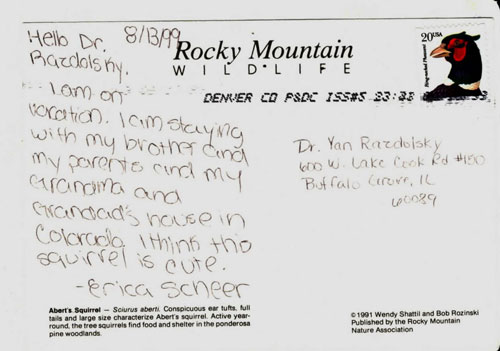 Hello Dr. 8/13/99
Razdolsky,
I am on
vacation. I am staying
with my brother and
my parents and my
Grandma and
Grandad's house in
Colorado. I think this
squirrel is cute.
-Erica Scheer
Abert's Squirrel — Sciurus aberti. Conspicuous ear tufts, full
tails and large size characterize Abert's squirrel. Active year-
round, the tree squirrels find food and shelter in the ponderosa
pine woodlands.
Rocky Mountain
WILDLIFE
20USA
Ring-necked Pheasant
DENVER CO P&DC ISS#5 23:33
Dr. Yan Razdolsky
600 W. Lake Cook Rd #150
Buffalo Grove, IL
60089
©1991 Wendy Shattil and Bob Rozinski
Published by the Rocky Mountain
Nature Association